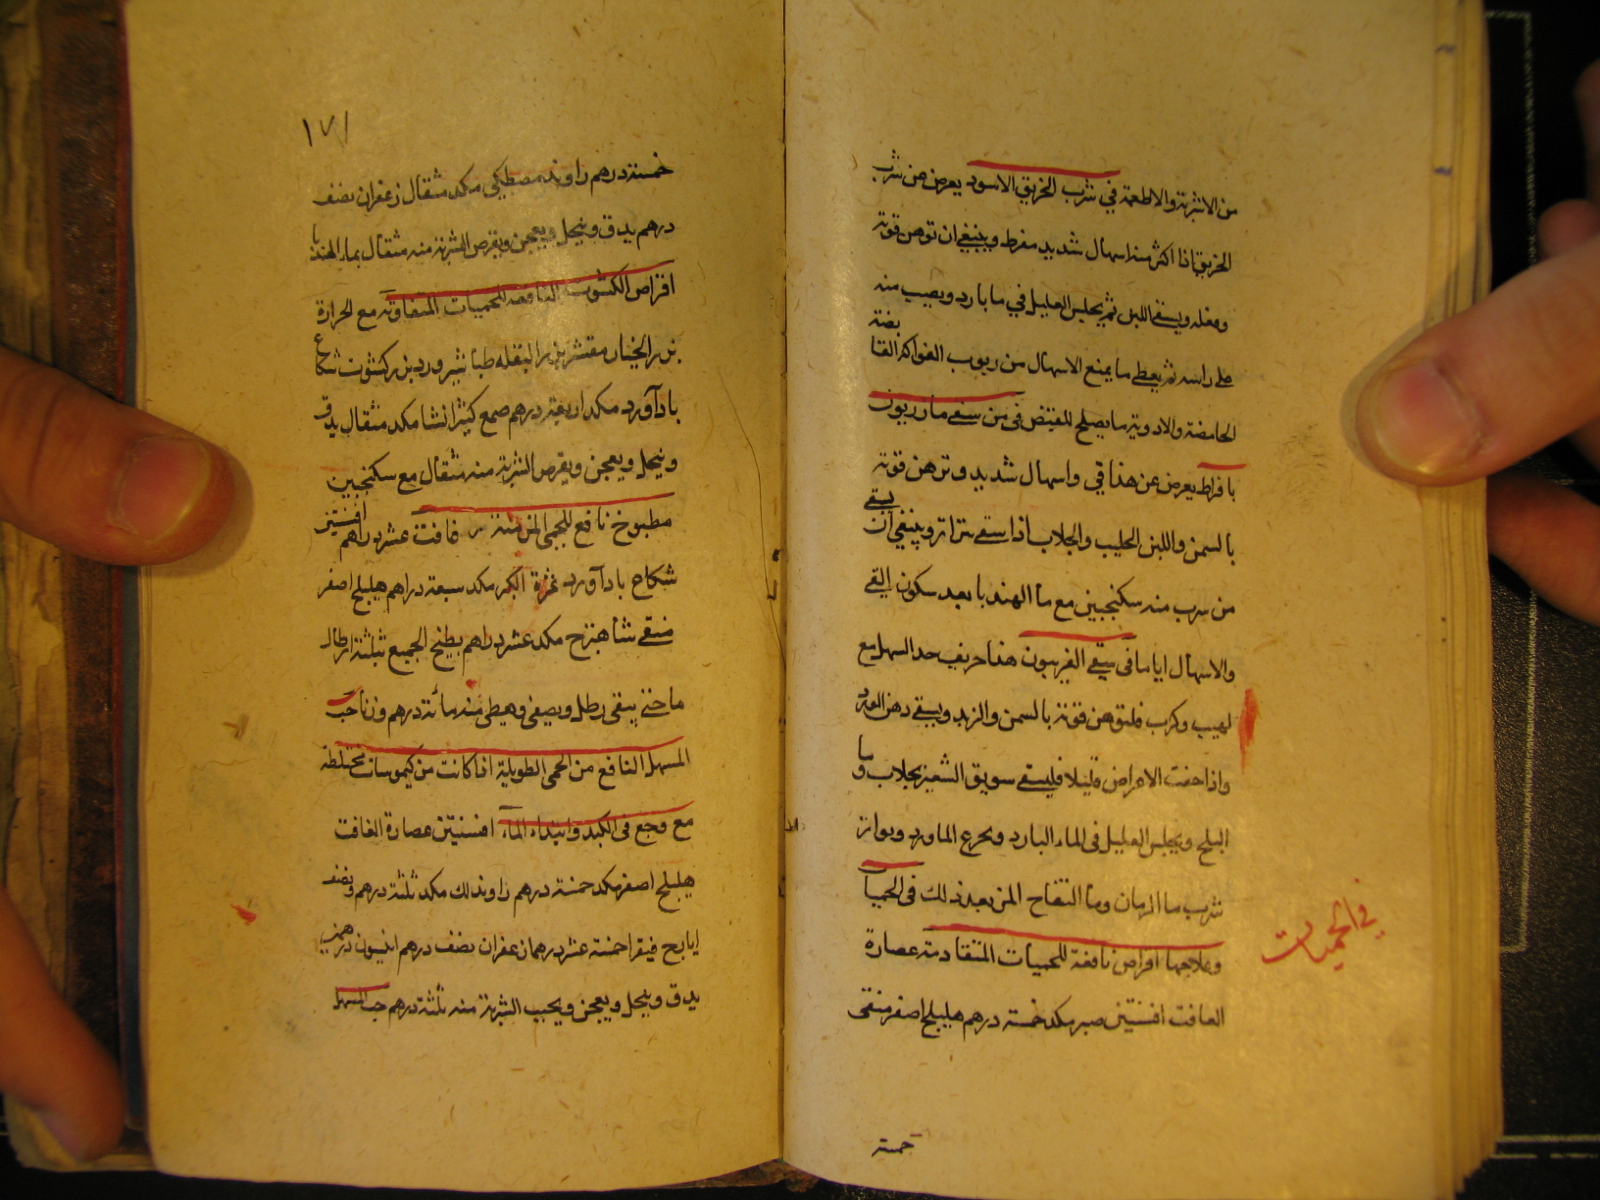 من الاشربة والاطعمة في شرب الخربق الاسود يعرض من شرب
الخربق اذا اكثر منه اسهال شديد مفرط وينبغي ان توهن قوته
وفعله ويسقي اللبن ثم يجلس العليل في ما بارد ويصب منه
على راسه ثم يعطى ما يمنع الاسهال من ربوب الفواكه القابضة
الحامضة والادوية ما يصلح للقبض في من سقي مازريون
بافراط يعرض عن هذا قي واسهال شديد وتوهن قوته
بالسمن واللبن الحليب والجلاب اذا سقي مرارا وينبغي ان يسقي
من شرب منه سكنجبين مع ما الهندبا بعد سكون القي
والاسهال اياما في سقي الفربيون هذا حريف حد السهل مع
لهيب وكرب فلتوهن قوته بالسمن والزبد ويسقي دهن
واذا خفت الاعراض قليلا فليسقي سويق الشعير بجلاب وما
الثلج ويجلس العليل في الماء البارد ويجرع الماورد
شرب ما الرمان وما التفاح المز بعد ذلك في الحميات
وعلاجها اقراص نافعة للحميات المتقادمة عصارة
الغافت افسنتين صبر مكد خمسة درهم هليلج اصفر منقى
في الحميات
خمسة
١٧١
خمسة درهم راوند مصطكي مكد مثقال زعفران نصف
درهم يدق وينخل ويعجن ويقرص الشربة منه مثقال بماء الهندبا
اقراص الكشوث النافعة للحميات المتفاوتة مع الحرارة
بزر الخيار مقشر بزر البقلة طباشير ورد بزر كشوث شكاع
باداورد مكد اربعة درهم صمغ كثيرا نشا مكد مثقال يدق
وينخل ويعجن ويقرص الشربة منه مثقال مع سكنجبين
مطبوخ نافع للحمى المزمنة غافت عشر دراهم افسنتين
شكاع باداورد ثمرة الكبر مكد سبعة دراهم هليلج اصفر
منقي شاهترج مكد عشر دراهم يطبخ الجميع بثلثة ارطال
ما حتى يبقى رطل ويصفى ويعطى منه مائة درهم وزنا حب
المسهل النافع من الحمى الطويلة اذا كانت من كيموسات مختلطة
مع وجع في الكبد وابتداء الماء افسنتين عصارة الغافت
هليلج اصفر مكد خمسة درهم راوند لك مكد ثلثة درهم ونصف
ايارج فيقرا خمسة عشر درهما زعفران نصف درهم انيسون درهمين
يدق وينخل ويعجن ويحبب الشربة منه ثلثة درهم حب المسهل